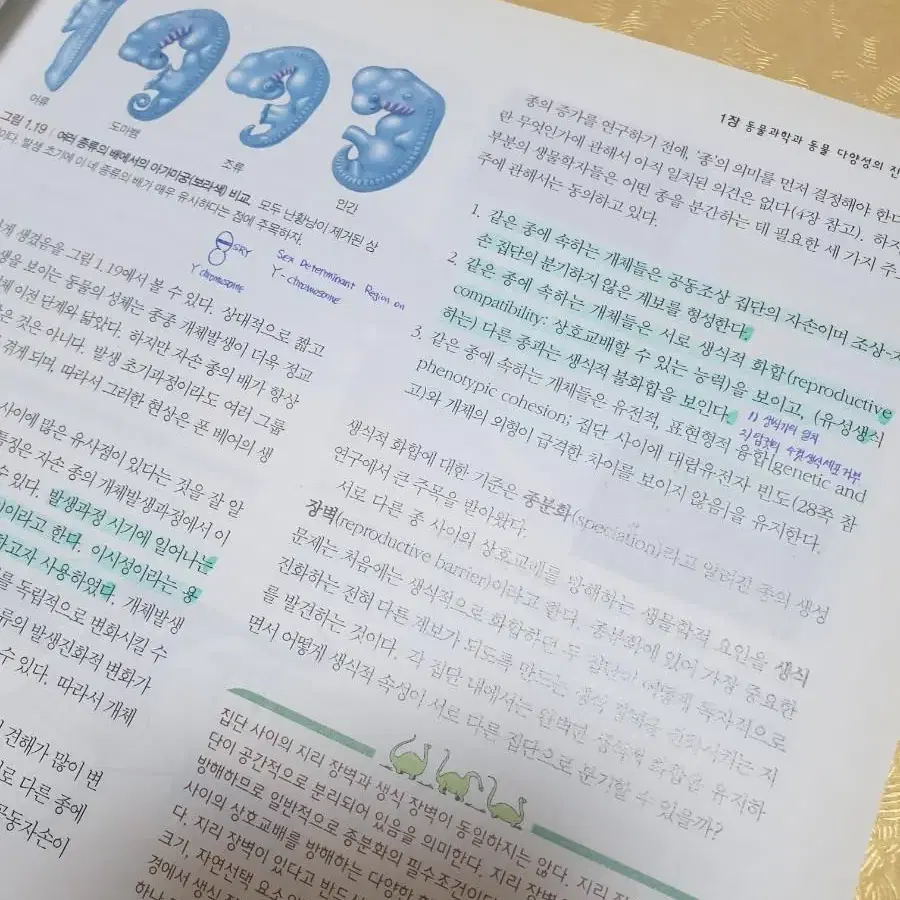 어류
도마뱀
조류
인간
그림 1.19 | 여러 종류의 배에서의 아가미궁(보라색) 비교. 모두 난황낭이 제거된 상
이다. 발생 초기에 이 네 종류의 배가 매우 유사하다는 점에 주목하자.
SRY
Y chromosome
Sex Determinant Region on
Y-chromosome
게 생겼음을 그림 1.19에서 볼 수 있다. 상대적으로 짧고
생을 보이는 동물의 성체는 종종 개체발생이 더욱 정교
체 이전 단계와 닮았다. 하지만 자손 종의 배가 항상
은 것은 아니다. 발생 초기과정이라도 여러 그룹
겪게 되며, 따라서 그러한 현상은 폰 베어의 생
사이에 많은 유사점이 있다는 것을 잘 알
특징은 자손 종의 개체발생과정에서 이
수 있다. 발생과정 시기에 일어나는
)이라고 한다. 이시성이라는 용
하고자 사용하였다. 개체발생
를 독립적으로 변화시킬 수
류의 발생진화적 변화가
수 있다. 따라서 개체
견해가 많이 변
로 다른 종에
공동자손이
1장 동물과학과 동물 다양성의 진
종의 증가를 연구하기 전에, ‘종’의 의미를 먼저 결정해야 한다
란 무엇인가에 관해서 아직 일치된 의견은 없다(4장 참고). 하지
부분의 생물학자들은 어떤 종을 분간하는 데 필요한 세 가지 주
주에 관해서는 동의하고 있다.
1. 같은 종에 속하는 개체들은 공동조상 집단의 자손이며 조상-자
손 집단의 분기하지 않은 계보를 형성한다.
2. 같은 종에 속하는 개체들은 서로 생식적 화합(reproductive
compatibility: 상호교배할 수 있는 능력)을 보이고, (유성생식
하는) 다른 종과는 생식적 불화합을 보인다.
3. 같은 종에 속하는 개체들은 유전적, 표현형적 융합[genetic and
phenotypic cohesion; 집단 사이에 대립유전자 빈도(28쪽 참
고)와 개체의 외형이 급격한 차이를 보이지 않음]을 유지한다.
생식적 화합에 대한 기준은 종분화(speciation)라고 알려진 종의 생성
연구에서 큰 주목을 받아왔다.
서로 다른 종 사이의 상호교배를 방해하는 생물학적 요인을 생식
장벽(reproductive barrier)이라고 한다. 종분화에 있어 가장 중요한
문제는 처음에는 생식적으로 화합하던 두 집단이 어떻게 독자적으로
진화하는 전혀 다른 계보가 되도록 만드는 생식 장벽을 진화시키는 지
를 발견하는 것이다. 각 집단 내에서는 완벽한 생식적 화합을 유지하
면서 어떻게 생식적 속성이 서로 다른 집단으로 분기할 수 있을까?
집단 사이의 지리 장벽과 생식 장벽이 동일하지는 않다. 지리 장
단이 공간적으로 분리되어 있음을 의미한다. 지리 장벽
방해하므로 일반적으로 종분화의 필수조건이다
다. 지리 장벽이 있다고 반드시
사이의 상호교배를 방해하는 다양한
크기, 자연선택 요소
경에서 생식
하나